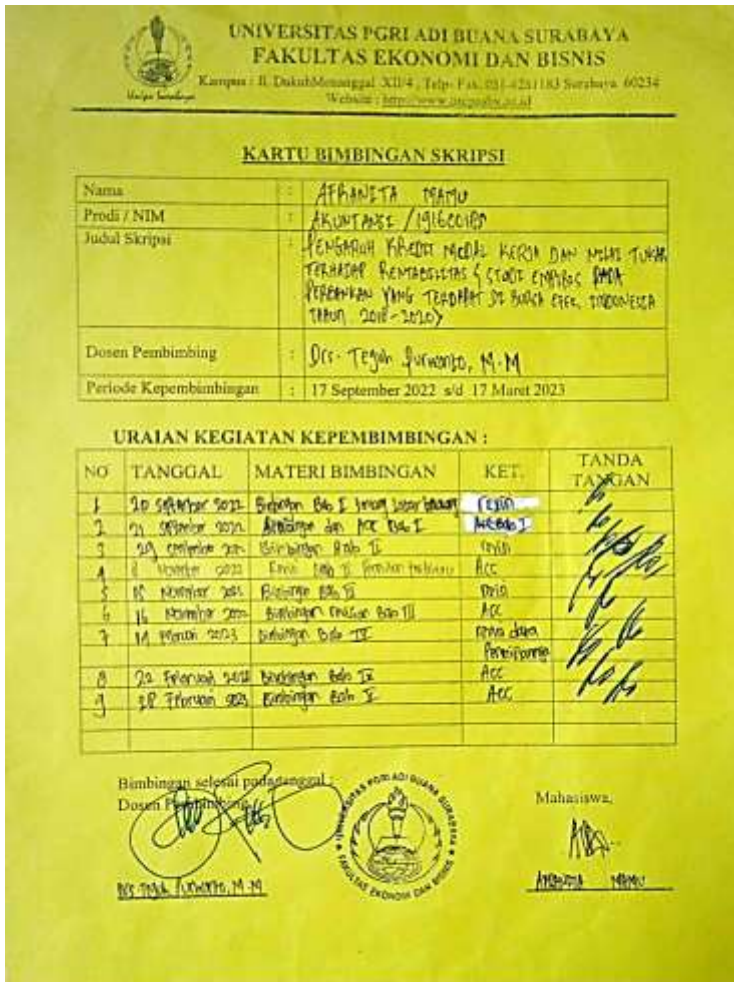 UNIVERSITAS PGRI ADI BUANA SURABAYA
FAKULTAS EKONOMI DAN BISNIS
Kampus : Jl. DukuhMenanggal XII/4, Telp- Fax. 031-8281183 Surabaya 60234
Website :
KARTU BIMBINGAN SKRIPSI
Nama : AFRANITA MAMU
Prodi / NIM : AKUNTANSI /
Judul Skripsi : PENGARUH KREDIT MODAL KERJA DAN NILAI TUKAR
TERHADAP RENTABILITAS ( STUDI EMPIRIS PADA
PERBANKAN YANG TERDAPAT DI BURSA EFEK INDONESIA
TAHUN 2018-2020)
Dosen Pembimbing : Drs. Teguh Purwanto, M.M
Periode Kepembimbingan : 17 September 2022 s/d 17 Maret 2023
URAIAN KEGIATAN KEPEMBIMBINGAN :
NO TANGGAL MATERI BIMBINGAN KET. TANDA TANGAN
1 20 September 2022 Bimbingan Bab I latar belakang revisi
2 21 September 2022 dan Acc Bab I Acc Bab I
3 29 September Bimbingan Bab II revisi
4 November 2022 Revisi Bab II Acc
5 15 November Bimbingan Bab III revisi
6 16 November 2022 Bimbingan Bab III Acc
7 14 2023 Bimbingan Bab IV revisi data
8 22 Februari Bimbingan Bab IV Acc
9 28 Februari 2023 Bimbingan Bab V Acc
Bimbingan selesai padatanggal :
Dosen Pembimbing, Mahasiswa,
UNIVERSITAS PGRI ADI BUANA SURABAYA
FAKULTAS EKONOMI DAN BISNIS
Drs. Teguh Purwanto, M.M AFRANITA MAMU